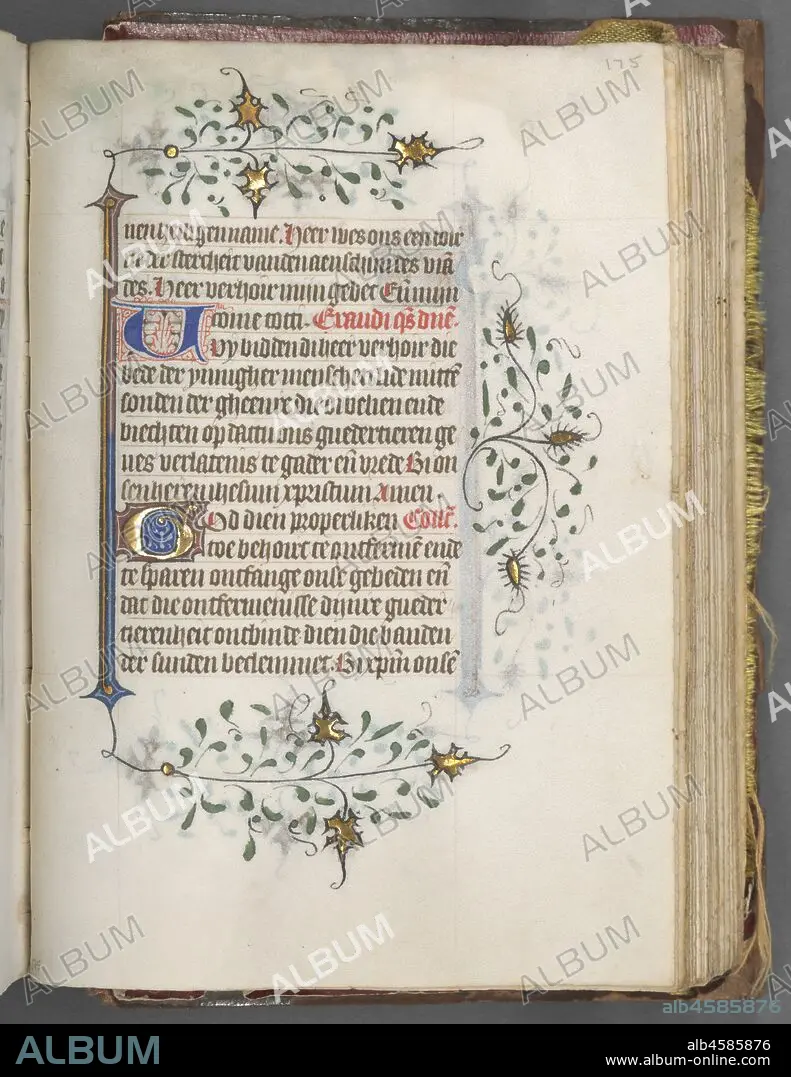 175
uen heilgen name. Heer wes ons een toir
ne der stercheit vanden aenschijn des viā
des. Heer verhoir mijn gebet En̄ mijn
come totti. Exaudi q̄s dn̄e.
Wy bidden di heer verhoir die
bede der ynnigher menschen ende mitte
sonden der gheenre die di belien ende
biechten op dattu ons guedertieren ge
ues verlatenis te gader en̄ vrede Bi on
sen heren ihesum xpristum Amen
God dien properliken Coll̄c.
toe behoirt te ontfermē ende
te sparen ontfange onse gebeden en̄
dat die ontfermenisse dijnre gueder
tierenheit ontbinde dien die banden
der sunden beclemmet. Bi xp̄m onsē
ALBUM
alb4585876
ALBUM
alb4585876
www.album-online.com